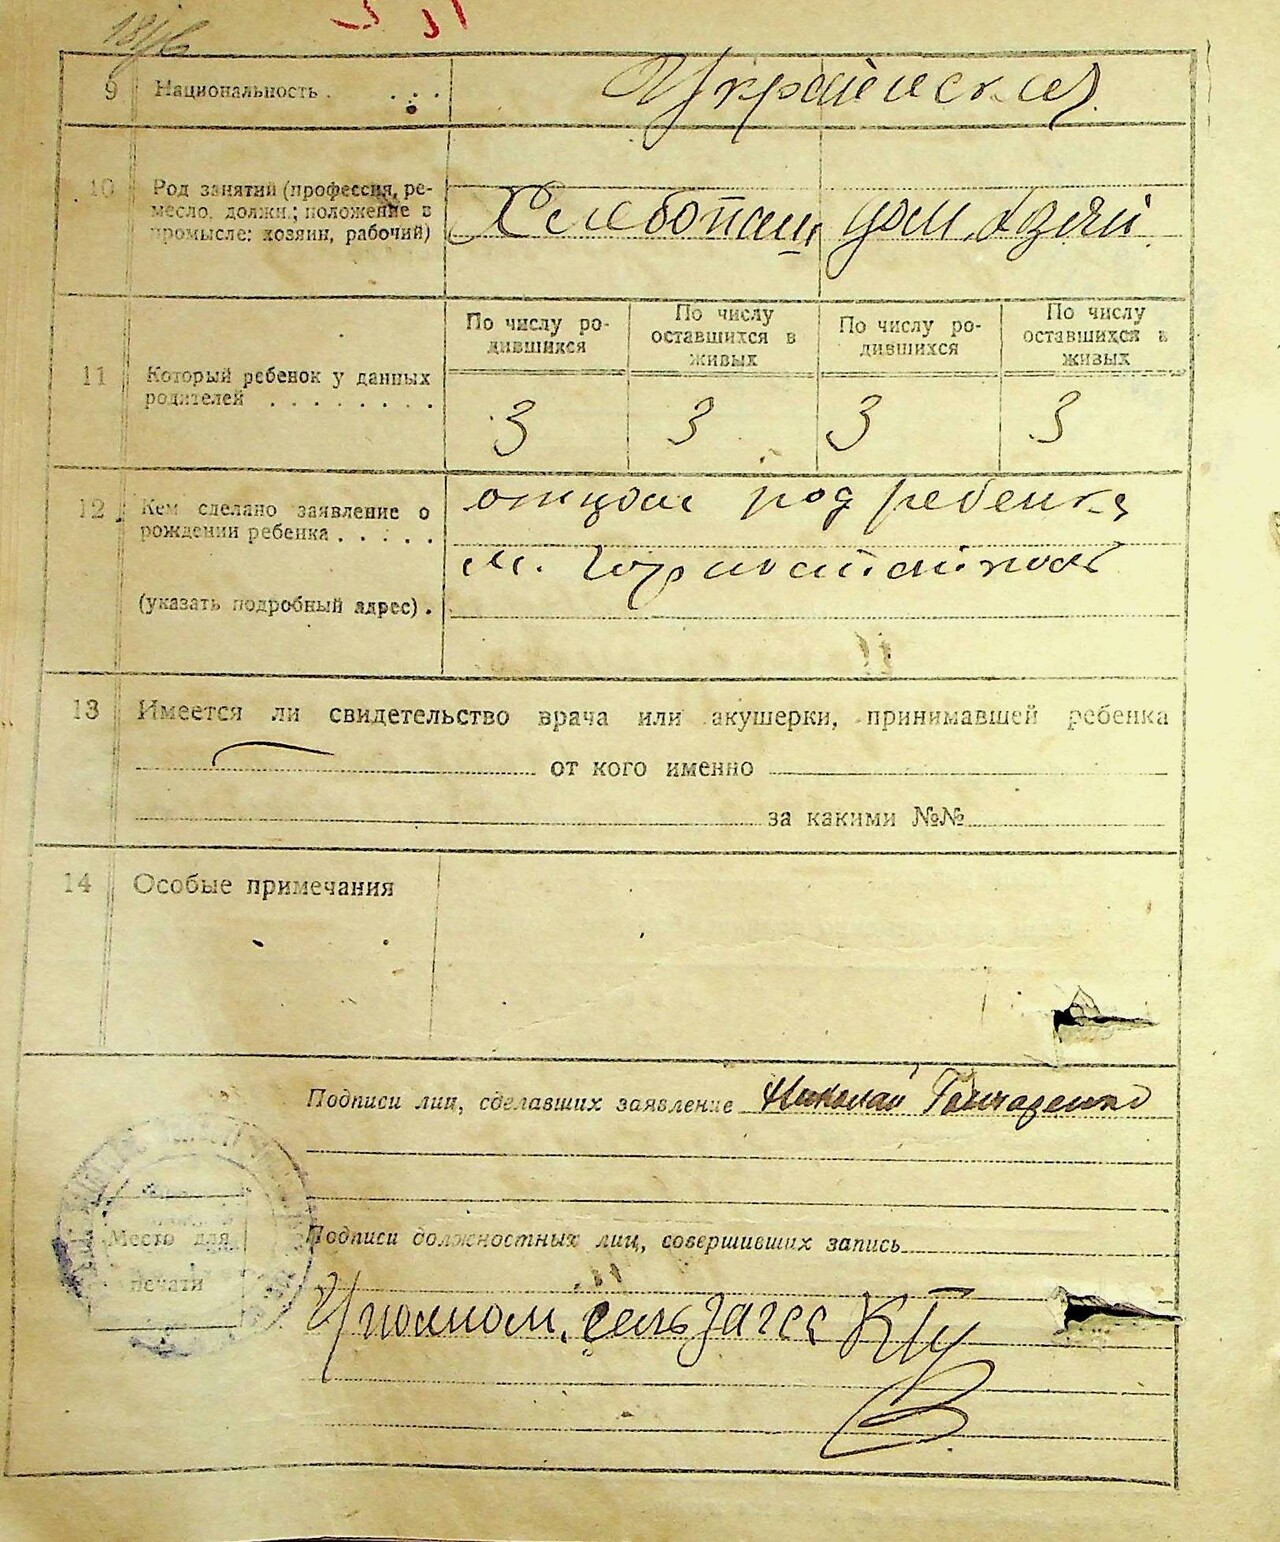 18/VI
9 Национальность . . . . Украинская
10 Род занятий (профессия, ре-
месло, должн.; положение в
промысле: хозяин, рабочий) Хлебопаш дом. хозяй
По числу ро-
дившихся По числу
оставшихся в
живых По числу ро-
дившихся По числу
оставшихся в
живых
11 Который ребенок у данных
родителей . . . . . . . . 3 3 3 3
12 Кем сделано заявление о
рождении ребенка . . . . . отцом род ребенка
(указать подробный адрес) . м. Горностайполь
13 Имеется ли свидетельство врача или акушерки, принимавшей ребенка
от кого именно
за какими №№
14 Особые примечания
Подписи лиц, сделавших заявление Николай Гончаренко
Место для
печати
Подписи должностных лиц, совершивших запись
Уполном. сельзагса